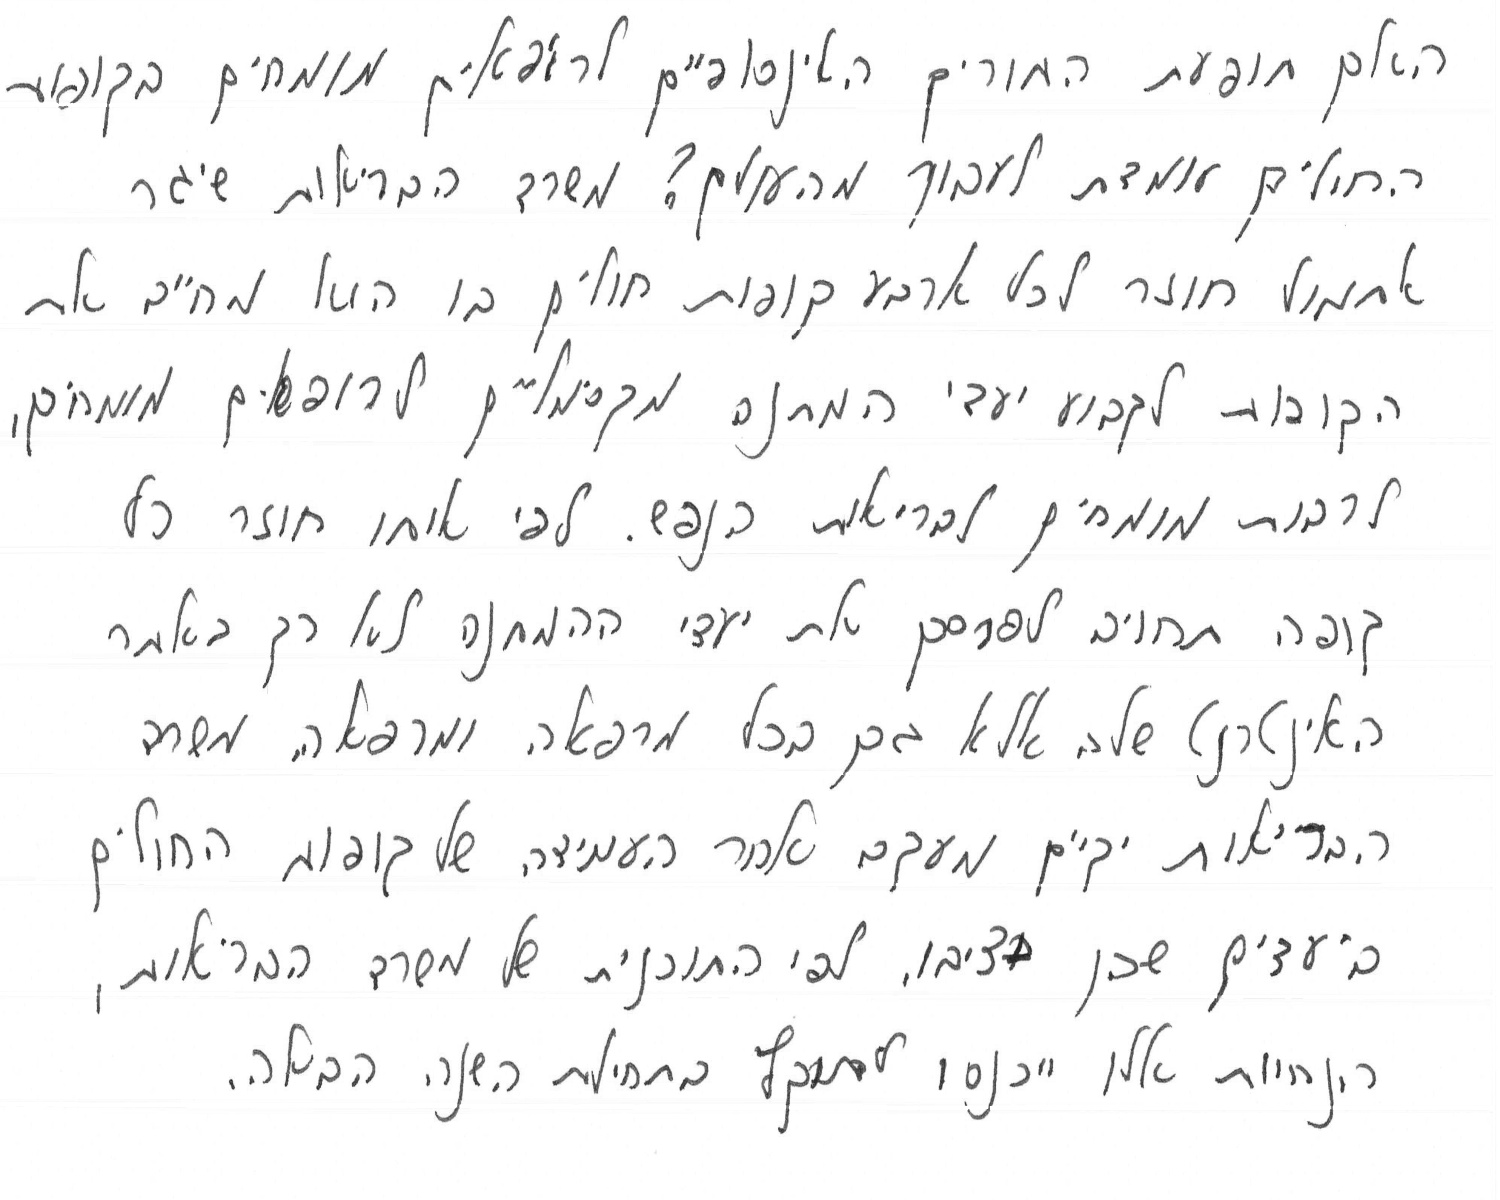 האם תופעת התורים האינסופיים לרופאים מומחים בקופות
החולים עומדת לעבור מהעולם? משרד הבריאות שיגר
אתמול חוזר לכל ארבע קופות חולים בו הוא מחייב את
הקופות לקבוע יעדי המתנה מקסימליים לרופאים מומחים,
לרבות מומחים לבריאות הנפש. לפי אותו חוזר כל
קופה תחויב לפרסם את יעדי ההמתנה לא רק באתר
האינטרנט שלה אלא גם בכל מרפאה ומרפאה. משרד
הבריאות יקיים מעקב אחר העמידה של קופות החולים
ביעדים שהן הציבו. לפי התוכנית של משרד הבריאות,
הנחיות אלו ייכנסו לתוקף בתחילת השנה הבאה.